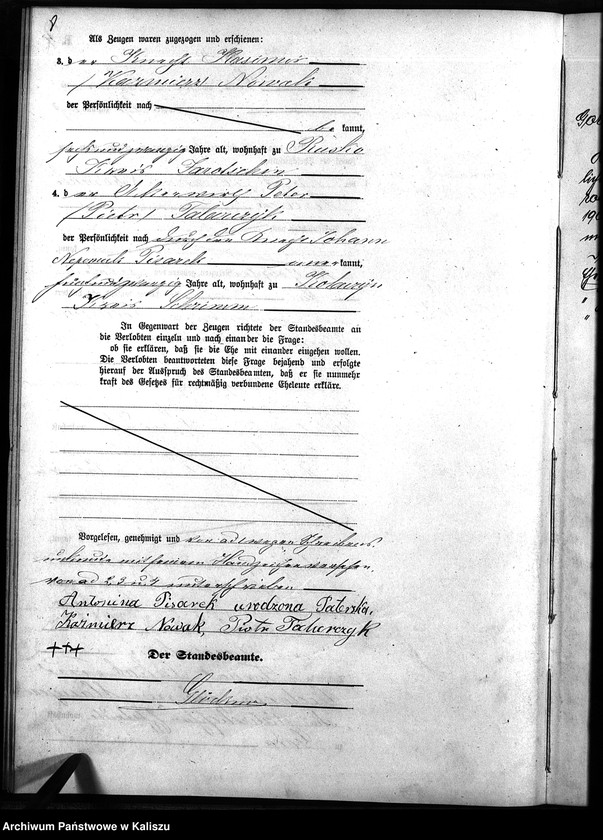 8
Als Zeugen waren zugezogen und erschienen:
3. der Knecht Kasimir
/Kazmierz/ Nowak
der Persönlichkeit nach
be kannt,
sechsundzwanzig Jahre alt, wohnhaft zu Rusko
Kreis Jarotschin
4. der Ackerwirt Peter
/Piotr/ Taburczyk
der Persönlichkeit nach durch den Knecht Johann
Nepomuk Pisarek anerkannt,
fünfundzwanzig Jahre alt, wohnhaft zu
Kreis Schrimm
In Gegenwart der Zeugen richtete der Standesbeamte an
die Verlobten einzeln und nach einander die Frage:
ob sie erklären, daß sie die Ehe mit einander eingehen wollen.
Die Verlobten beantworteten diese Frage bejahend und erfolgte
hierauf der Ausspruch des Standesbeamten, daß er sie nunmehr
kraft des Gesetzes für rechtmäßig verbundene Eheleute erkläre.
Vorgelesen, genehmigt und von ad 1 wegen Schreibens-
unkunde mit seinem Handzeichen versehen,
von ad 2, 3 u 4 unterschrieben
Antonina Pisarek urodzona Paterska,
Kaźmierz Nowak, Piotr Taburczyk
+++
Der Standesbeamte.
Archiwum Państwowe w Kaliszu